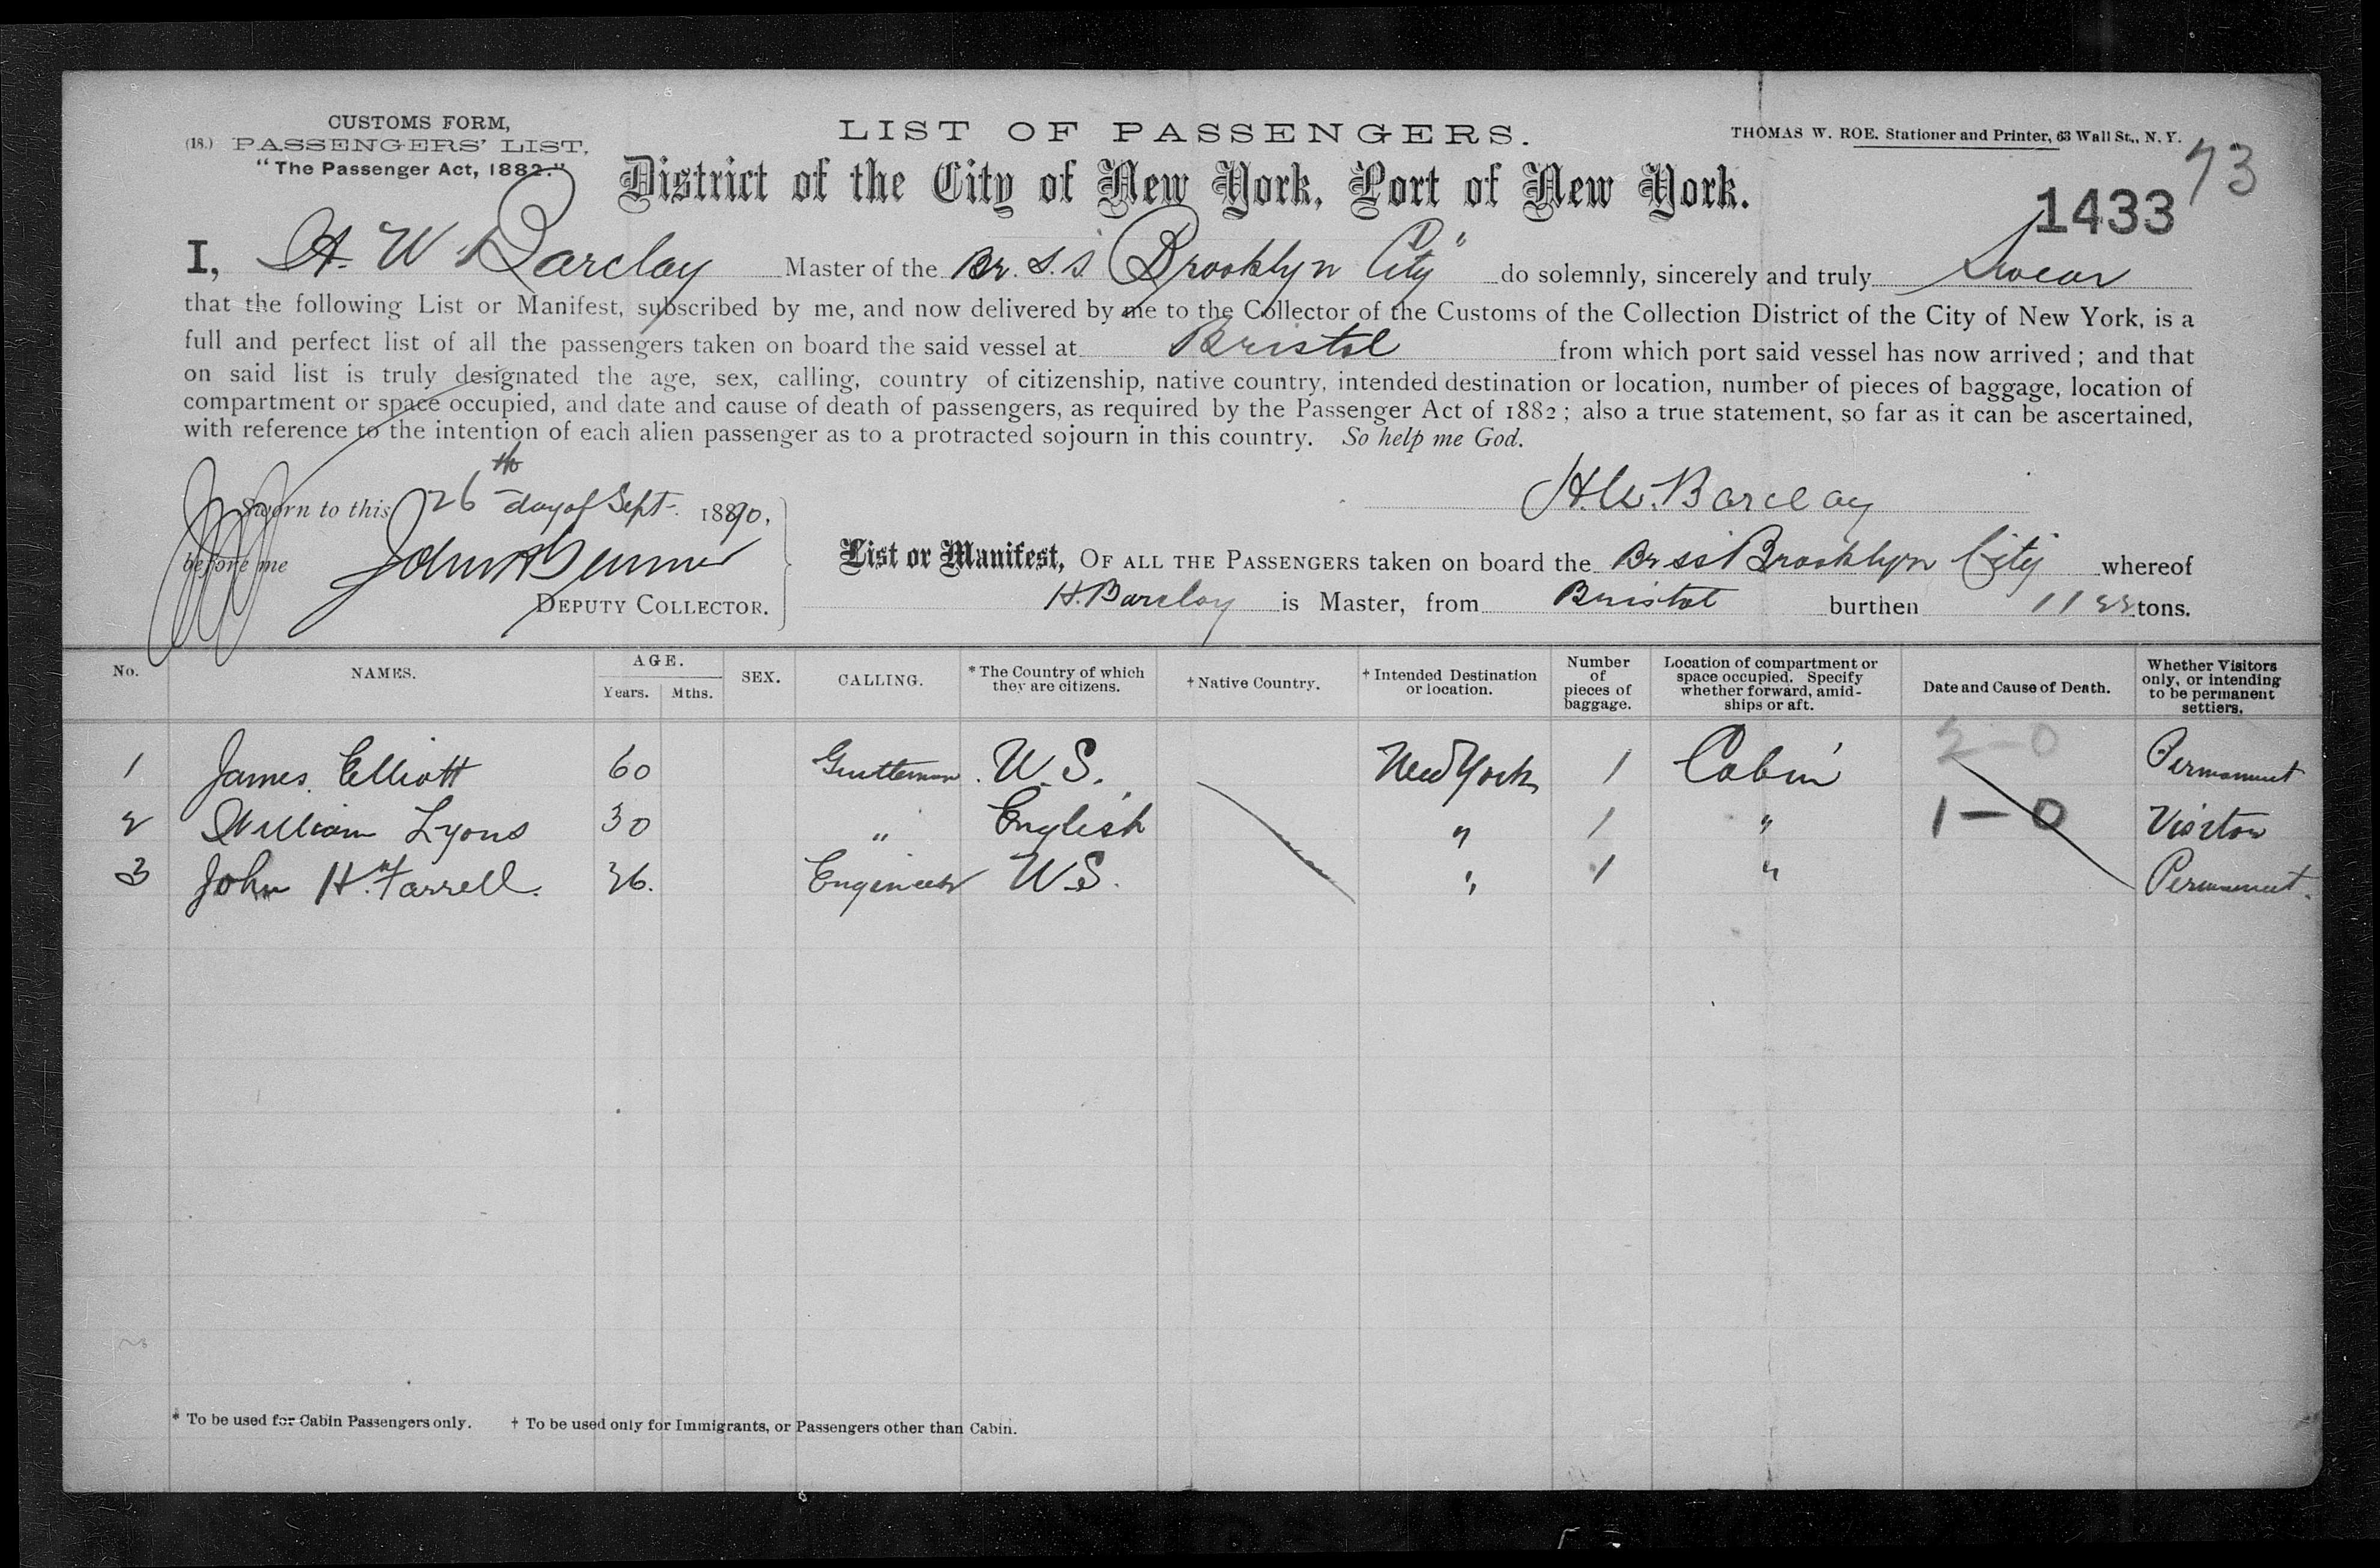 CUSTOMS FORM,
(18.) PASSENGERS' LIST,
"The Passenger Act, 1882."
LIST OF PASSENGERS.
THOMAS W. ROE, Stationer and Printer, 63 Wall St., N. Y.
73
District of the City of New York, Port of New York.
1433
I, H. W Barclay Master of the Br. S.S "Brooklyn City" do solemnly, sincerely and truly Swear
that the following List or Manifest, subscribed by me, and now delivered by me to the Collector of the Customs of the Collection District of the City of New York, is a
full and perfect list of all the passengers taken on board the said vessel at Bristol from which port said vessel has now arrived; and that
on said list is truly designated the age, sex, calling, country of citizenship, native country, intended destination or location, number of pieces of baggage, location of
compartment or space occupied, and date and cause of death of passengers, as required by the Passenger Act of 1882; also a true statement, so far as it can be ascertained,
with reference to the intention of each alien passenger as to a protracted sojourn in this country. So help me God.
Sworn to this 26th day of Sept. 1890,
H. W. Barclay
before me John
DEPUTY COLLECTOR.
List or Manifest, OF ALL THE PASSENGERS taken on board the Br ss Brooklyn City whereof
H. Barclay is Master, from Bristol burthen 1122 tons.
No. NAMES. AGE. Years. Mths. SEX. CALLING. * The Country of which they are citizens. † Native Country. † Intended Destination or location. Number of pieces of baggage. Location of compartment or space occupied. Specify whether forward, amidships or aft. Date and Cause of Death. Whether Visitors only, or intending to be permanent settlers.
1 James Elliott 60 Gentleman U.S. New York 1 Cabin 2-0 Permanent
2 William Lyons 30 " English " 1 " 1-0 Visitor
3 John H. Farrell. 36. Engineer U.S. " 1 " Permanent.
* To be used for Cabin Passengers only. † To be used only for Immigrants, or Passengers other than Cabin.